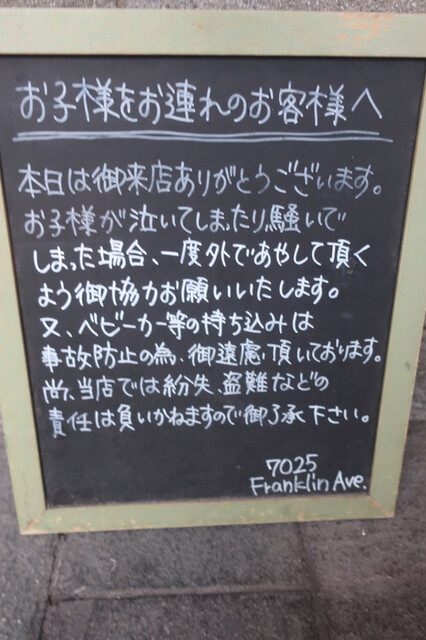 お子様をお連れのお客様へ
本日は御来店ありがとうございます。
お子様が泣いてしまったり、騒いで
しまった場合、一度外であやして頂く
よう御協力お願いいたします。
又、ベビーカー等の持ち込みは
事故防止の為、御遠慮頂いております。
尚、当店では紛失、盗難などの
責任は負いかねますので御了承下さい。
7025
Franklin Ave.